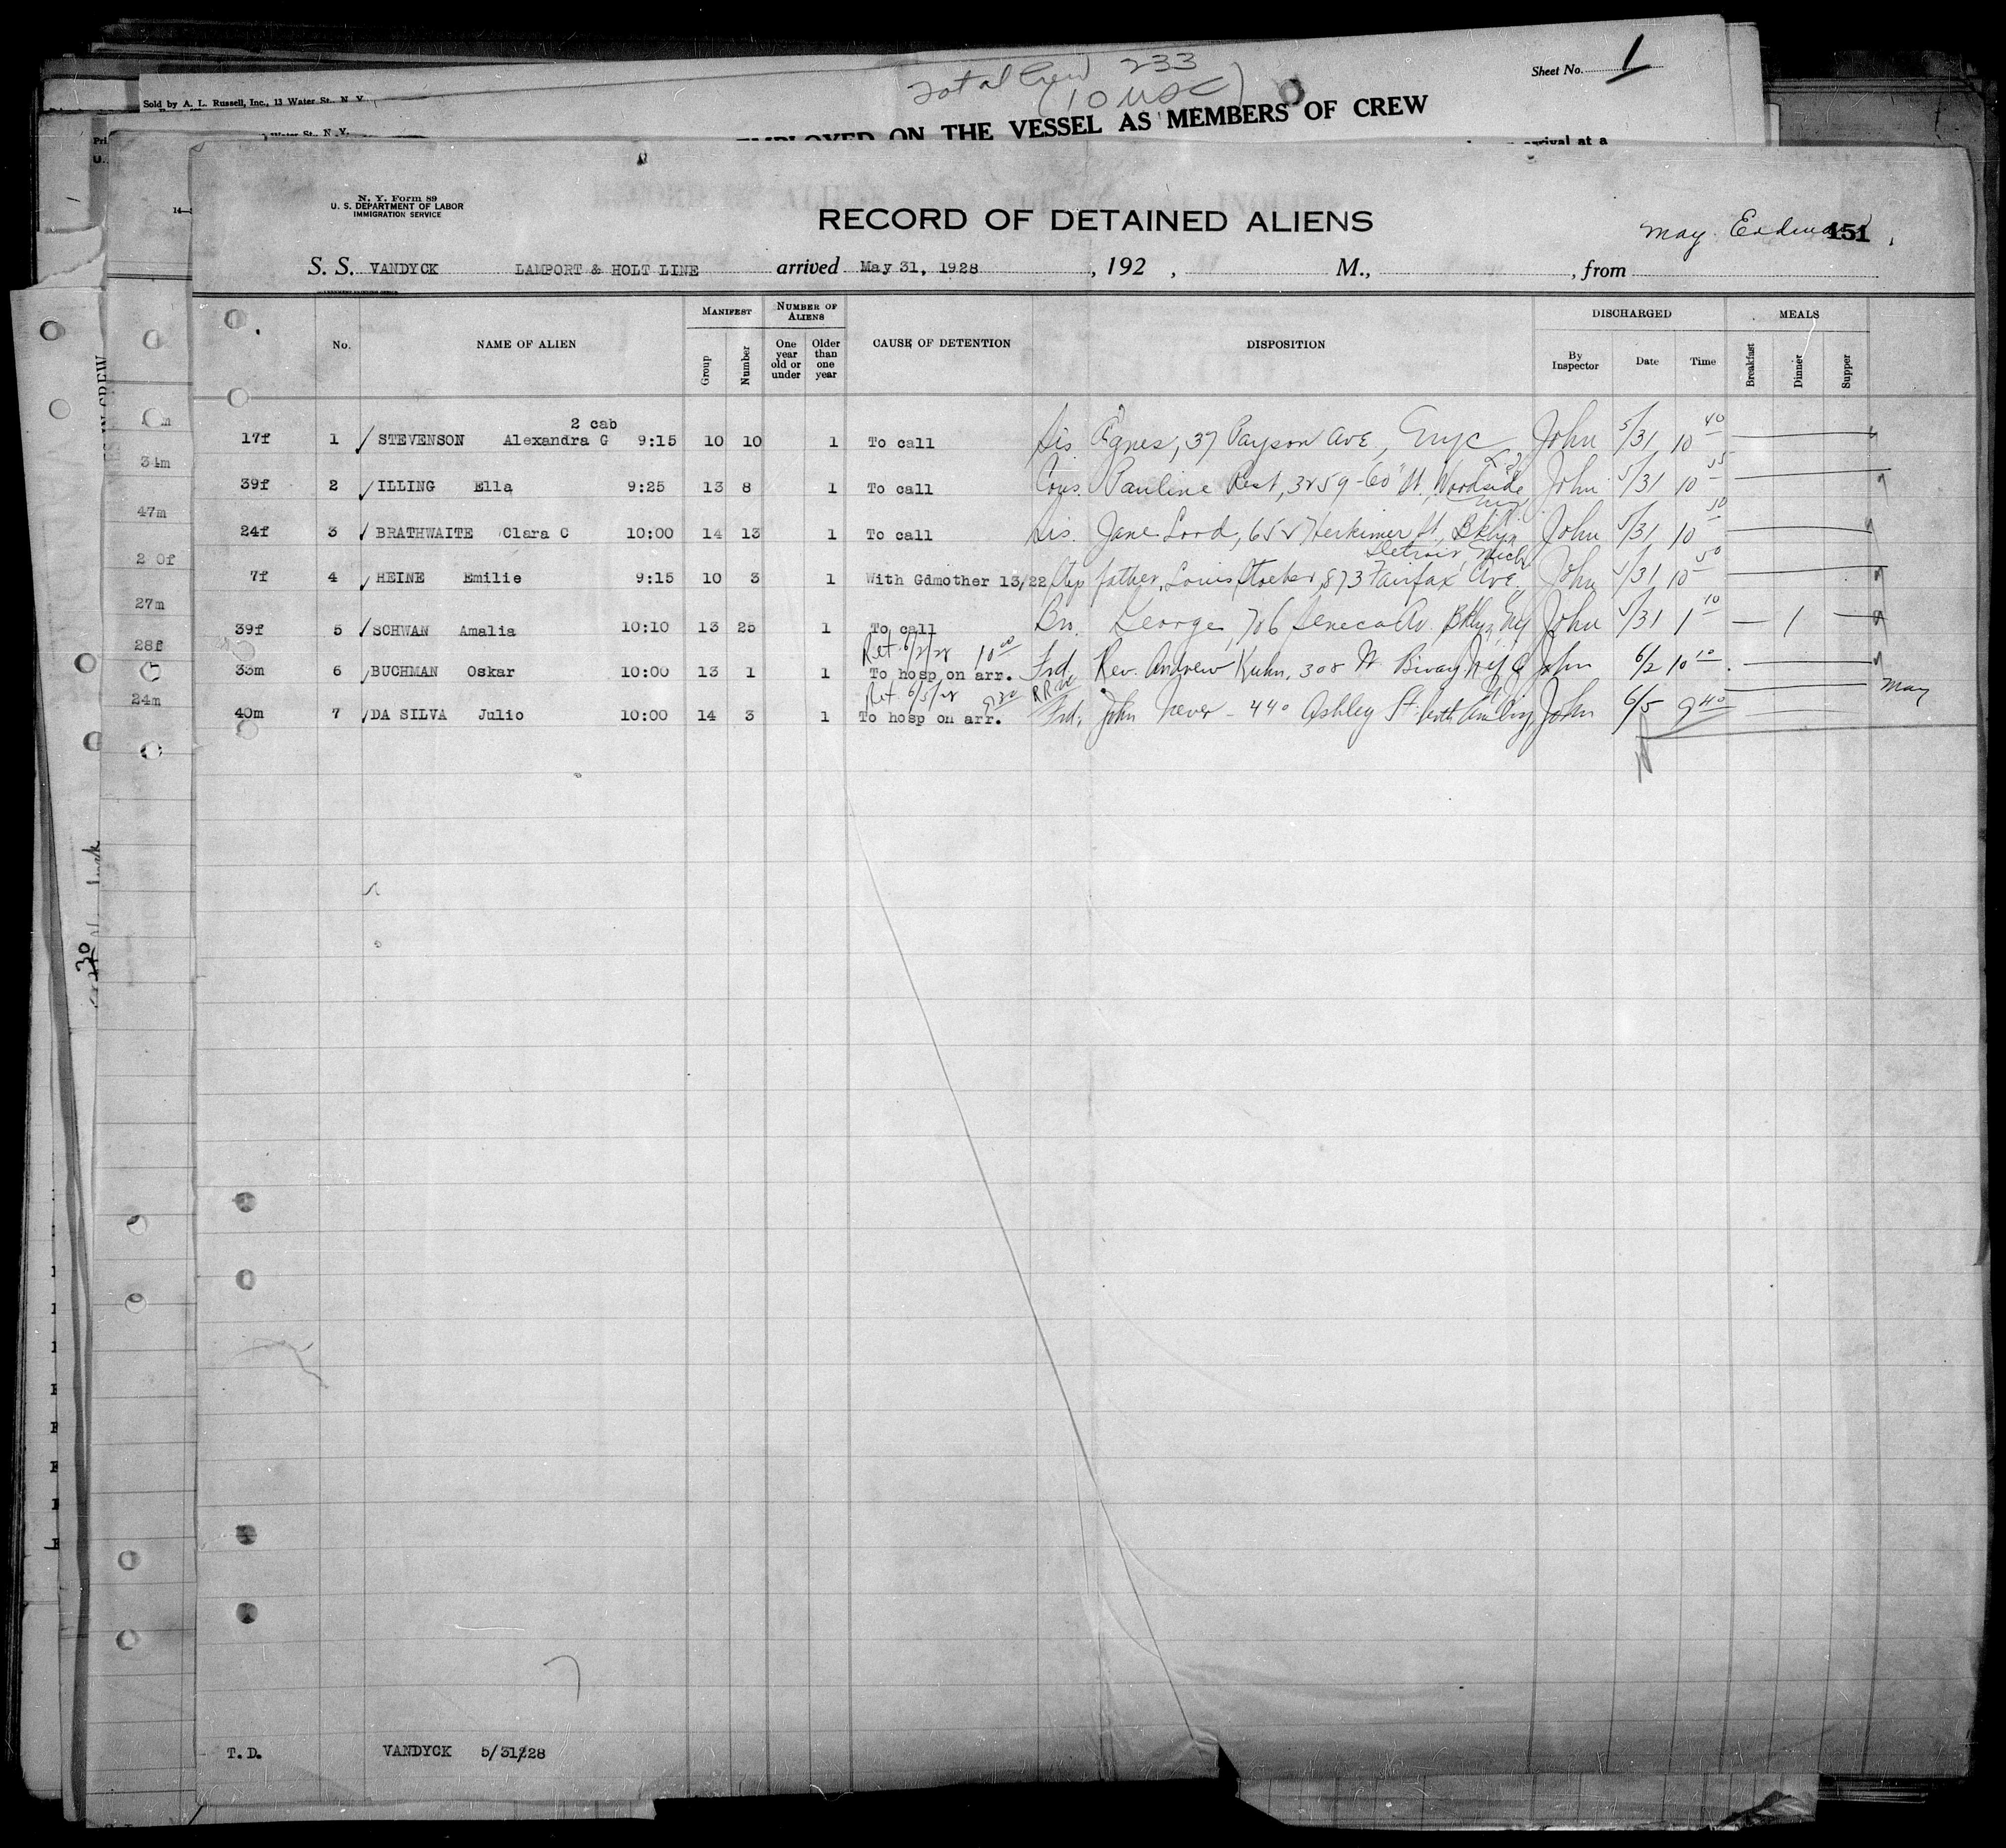 Total Crew 233
(10 USC)
Sheet No. 1
Sold by A. L. Russell, Inc., 13 Water St., N. Y.
Water St., N. Y.
EMPLOYED ON THE VESSEL AS MEMBERS OF CREW
arrival at a
N. Y. Form 89
U. S. DEPARTMENT OF LABOR
IMMIGRATION SERVICE
RECORD OF DETAINED ALIENS
May 151
S. S. VANDYCK LAMPORT & HOLT LINE arrived May 31, 1928, 192 , M., , from
No. NAME OF ALIEN MANIFEST Group Number NUMBER OF ALIENS One year old or under Older than one year CAUSE OF DETENTION DISPOSITION DISCHARGED By Inspector Date Time MEALS Breakfast Dinner Supper
2 cab
17f 1 STEVENSON Alexandra G 9:15 10 10 1 To call Sis Agnes, 37 Payson Ave, NYC John 5/31 10 40
34m
39f 2 ILLING Ella 9:25 13 8 1 To call Cous. Pauline Rest, 3259-60" St, Woodside John 5/31 10 55
47m
24f 3 BRATHWAITE Clara C 10:00 14 13 1 To call Sis. Jane Lord, 655 Herkimer St, Bklyn John 5/31 10 50
2 0f
Detroit Mich
7f 4 HEINE Emilie 9:15 10 3 1 With Gdmother 13/22 Step father, Louis Stoeber, 873 Fairfax Ave. John 5/31 10 50
27m
39f 5 SCHWAN Amalia 10:10 13 25 1 To call Bro. George, 706 Seneca Av. Bklyn NY John 5/31 1 10 1
28f
Ret 6/2/28 10 00
33m 6 BUCHMAN Oskar 10:00 13 1 1 To hosp on arr. Frd Rev. Andrew Kuhn, 308 W Bway, NYC John 6/2 10 10
24m
Ret 6/5/28 9 30
May
40m 7 DA SILVA Julio 10:00 14 3 1 To hosp on arr. Frd, John Never - 440 Ashley St Perth Amboy John 6/5 9 40
30
T. D. VANDYCK 5/31/28